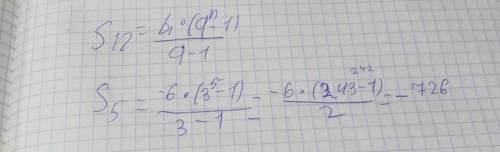 S₁₂ = b₁·(qⁿ-1) / q-1
S₅ = -6·(3⁵-1) / 3-1 = -6·(243-1) 242 / 2 = -726